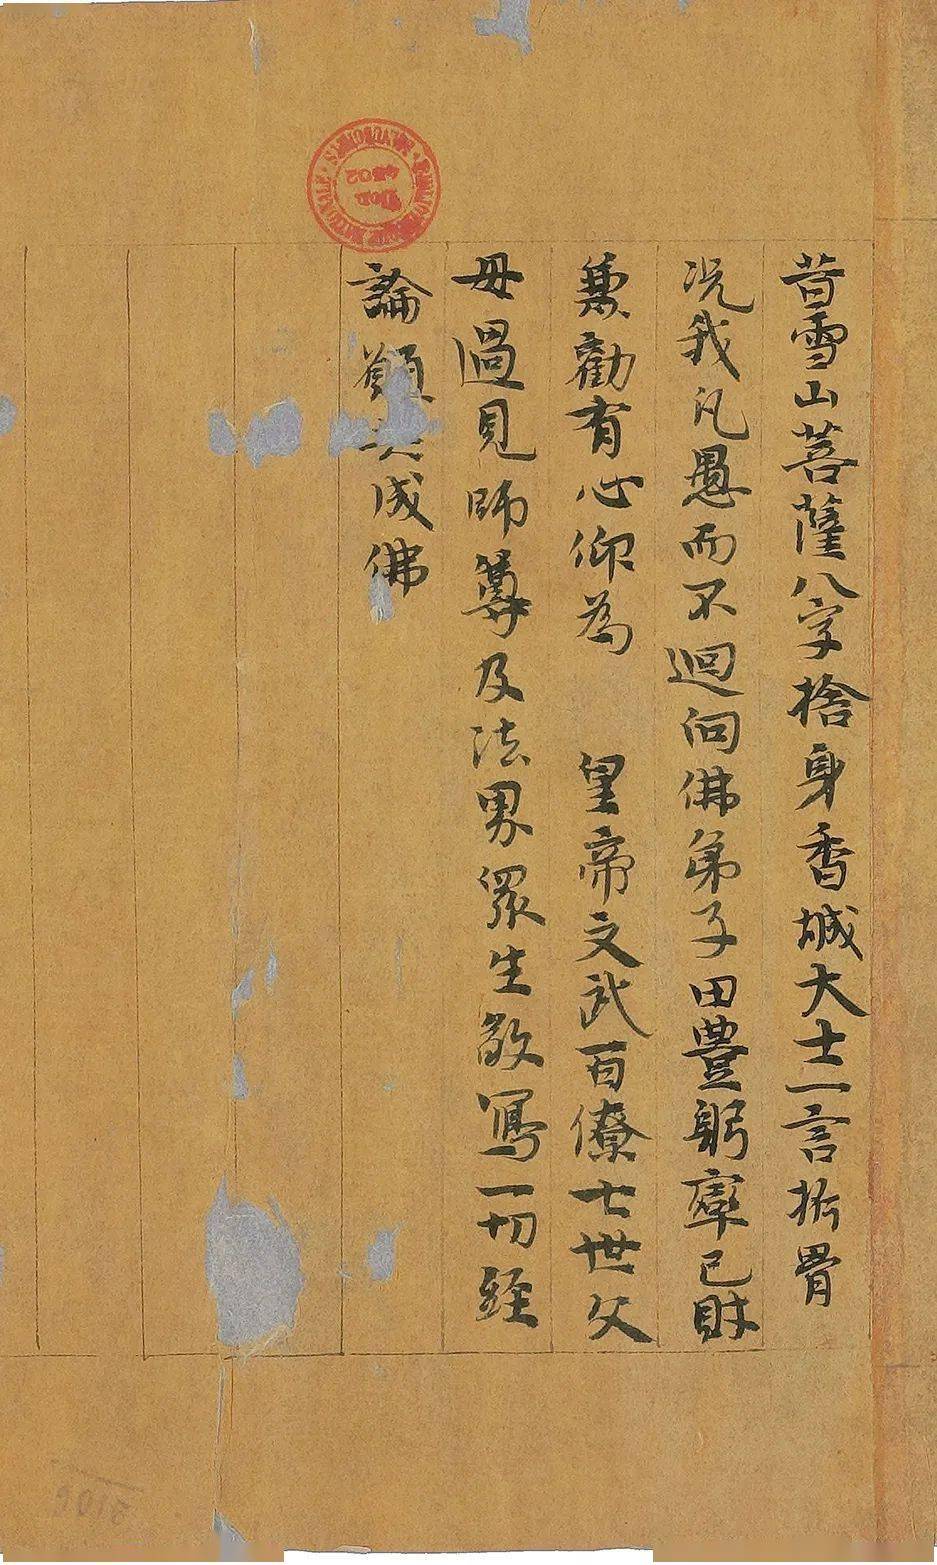 昔雪山菩薩八字捨身香城大士一言析骨
况我凡愚而不迴向佛弟子田豊躬率己財
兼勸有心仰為 皇帝文武百僚七世父
母過見師尊及法界眾生敬寫一切經
論願成佛